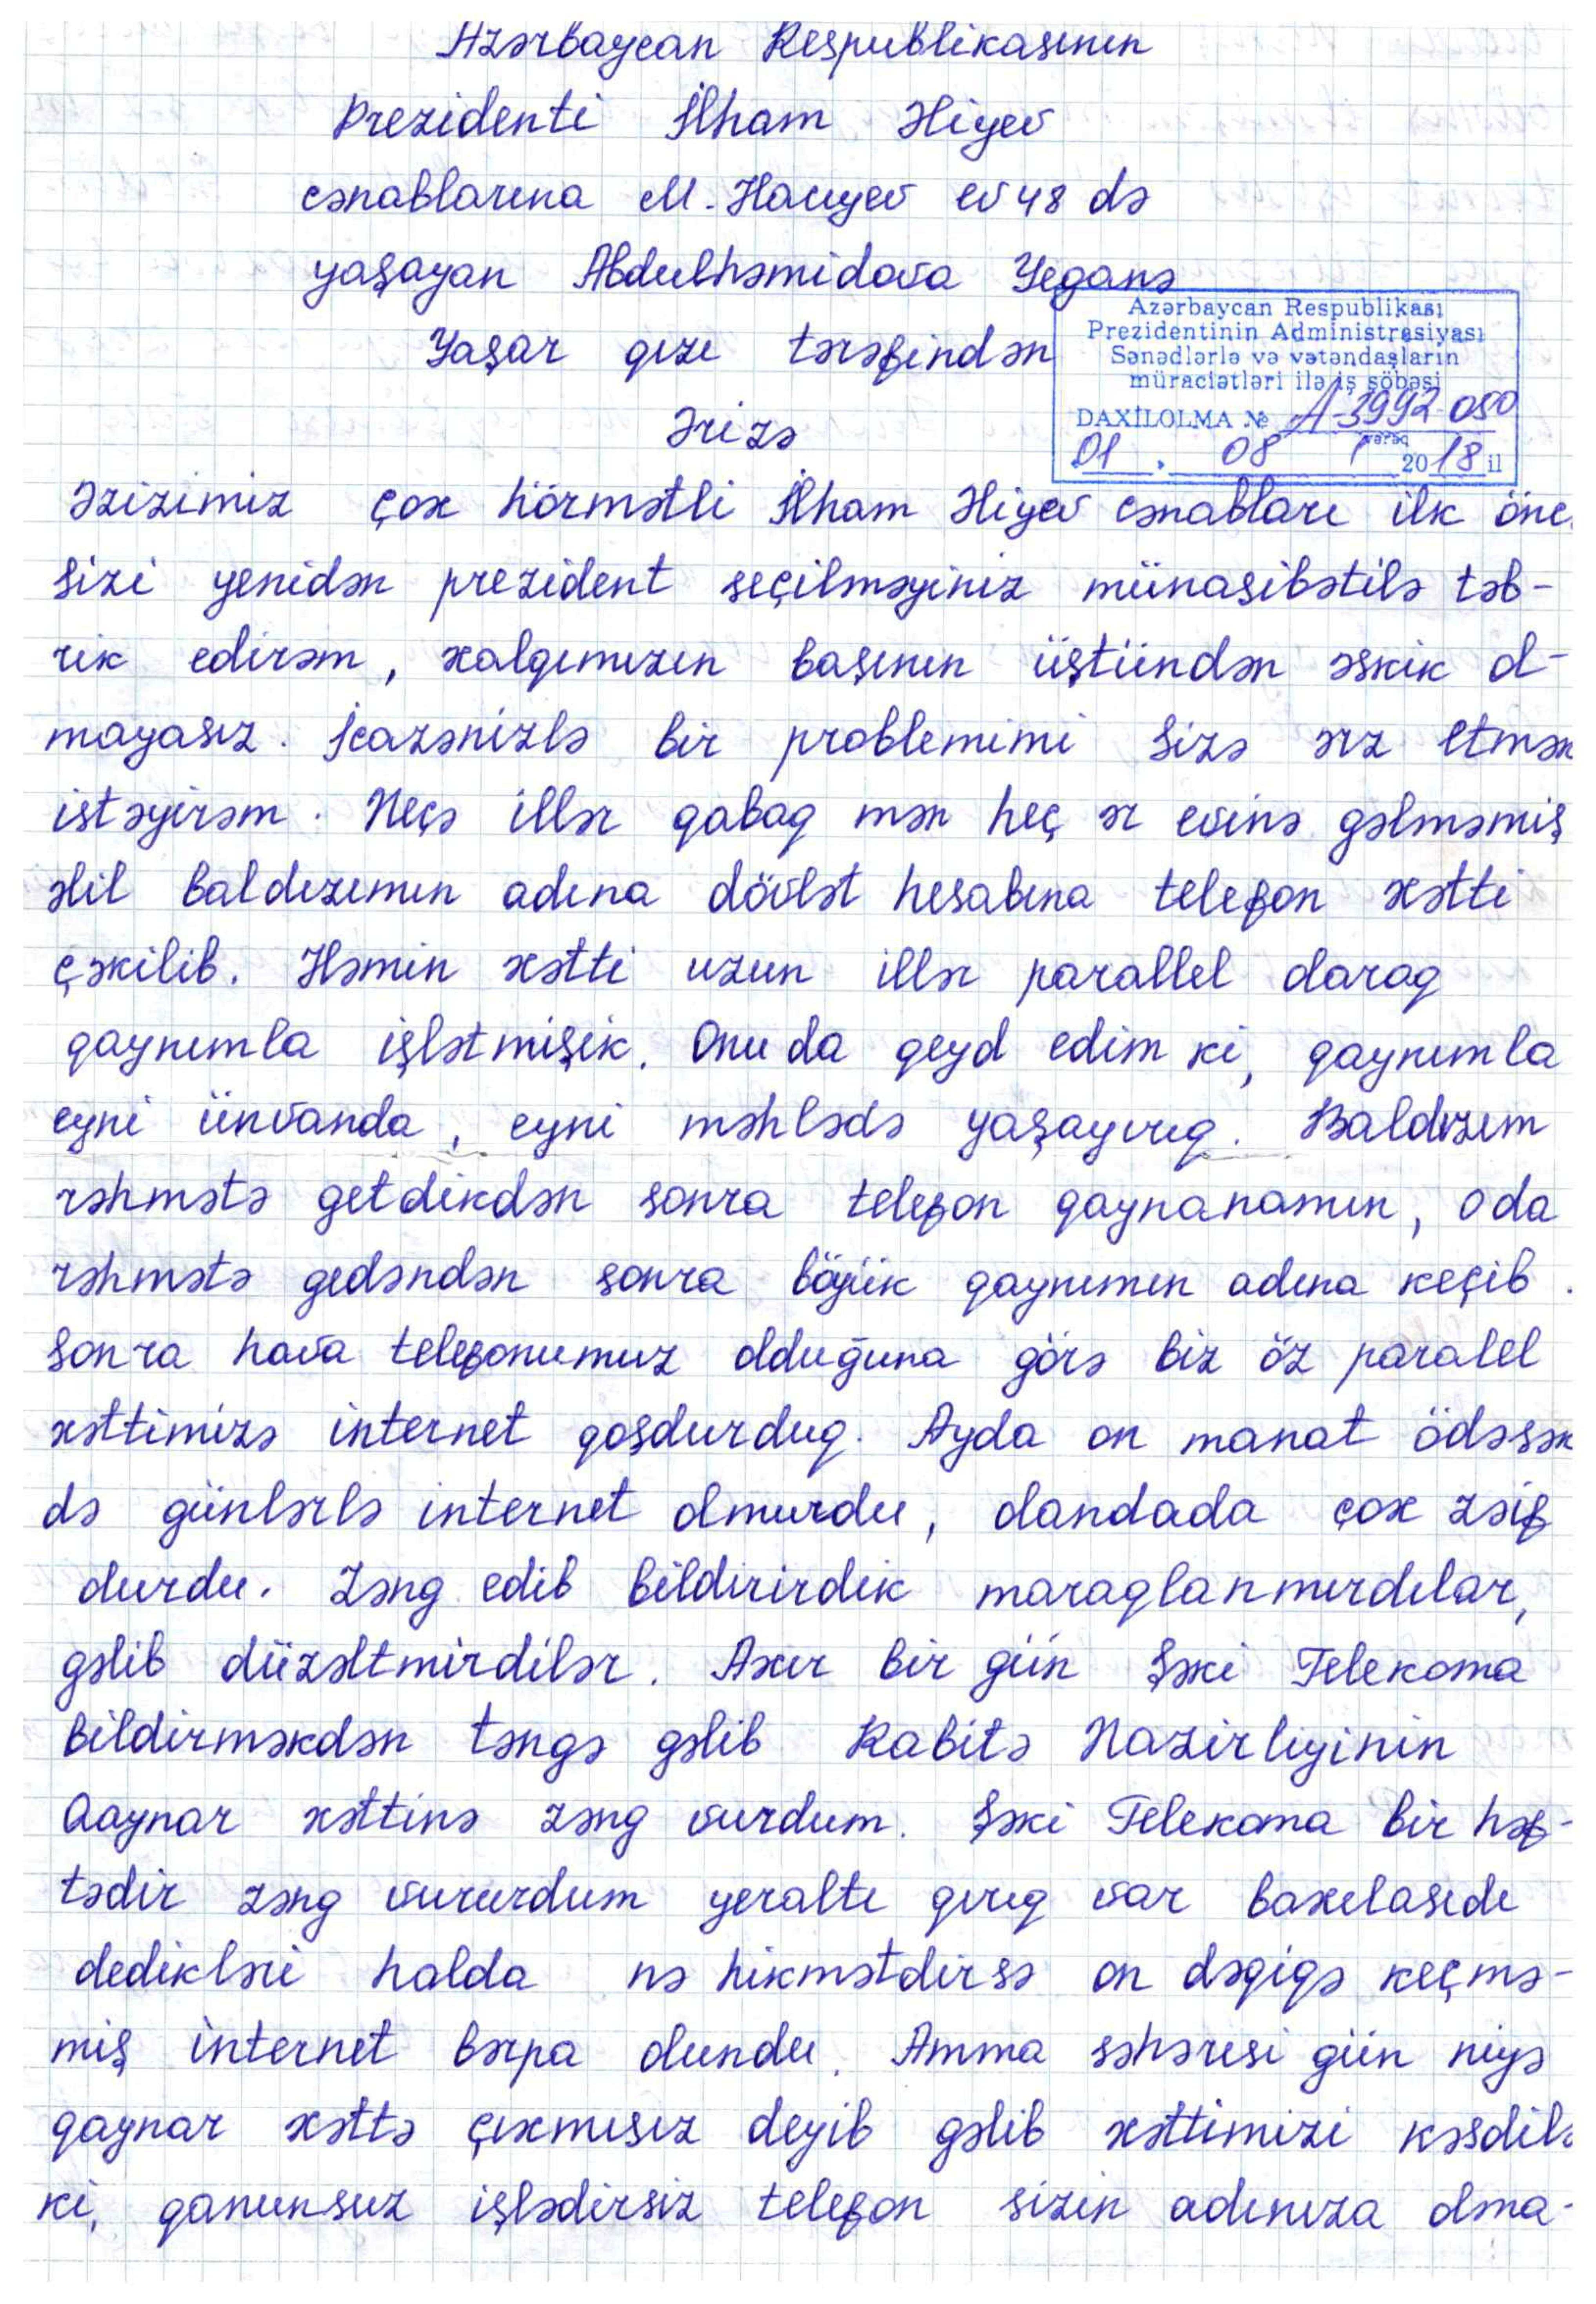 Azərbaycan Respublikasının
Prezidenti İlham Əliyev
cənablarına M. Haciyev ev 48 də
yaşayan Abdulhəmidova Yeganə
Yaşar qızı tərəfindən
Azərbaycan Respublikası
Prezidentinin Administrasiyası
Sənədlərlə və vətəndaşların
müraciətləri ilə iş şöbəsi
DAXİLOLMA № A-3992-080
vərəq
01. 08 2018 il
Ərizə
Əzizimiz çox hörmətli İlham Əliyev cənabları ilk önc
sizi yenidən prezident seçilməyiniz münasibətilə təb-
rik edirəm, xalqımızın başının üstündən əskik ol-
mayasız. İcazənizlə bir problemimi sizə ərz etmək
istəyirəm. Neçə illər qabaq mən heç ər evinə gəlməmiş
əlil baldızımın adına dövlət hesabına telefon xətti
çəkilib. Həmin xətti uzun illər parallel olaraq
qaynımla işlətmişik. Onu da qeyd edim ki, qaynımla
eyni ünvanda, eyni məhlədə yaşayırıq. Baldızım
rəhmətə getdikdən sonra telefon qaynanamın, o da
rəhmətə gedəndən sonra böyük qaynımın adına keçib.
Sonra hava telefonumuz olduğuna görə biz öz paralel
xəttimizə internet qoşdurduq. Ayda on manat ödəsək
də günlərlə internet olmurdu, olandada çox zəif
olurdu. Zəng edib bildirirdik maraqlanmırdılar,
gəlib düzəltmirdilər. Axır bir gün Şəki Telekoma
bildirməkdən təngə gəlib Rabitə Nazirliyinin
Qaynar xəttinə zəng vurdum. Şəki Telekoma bir həf-
tədir zəng vururdum yeraltı qırıq var baxılasıdı
dedikləri halda nə hikmətdirsə on dəqiqə keçmə-
miş internet bərpa olundu. Amma səhərisi gün niyə
qaynar xəttə çıxmısız deyib gəlib xəttimizi kəsdilə
ki, qanunsuz işlədirsiz telefon sizin adınıza olma-